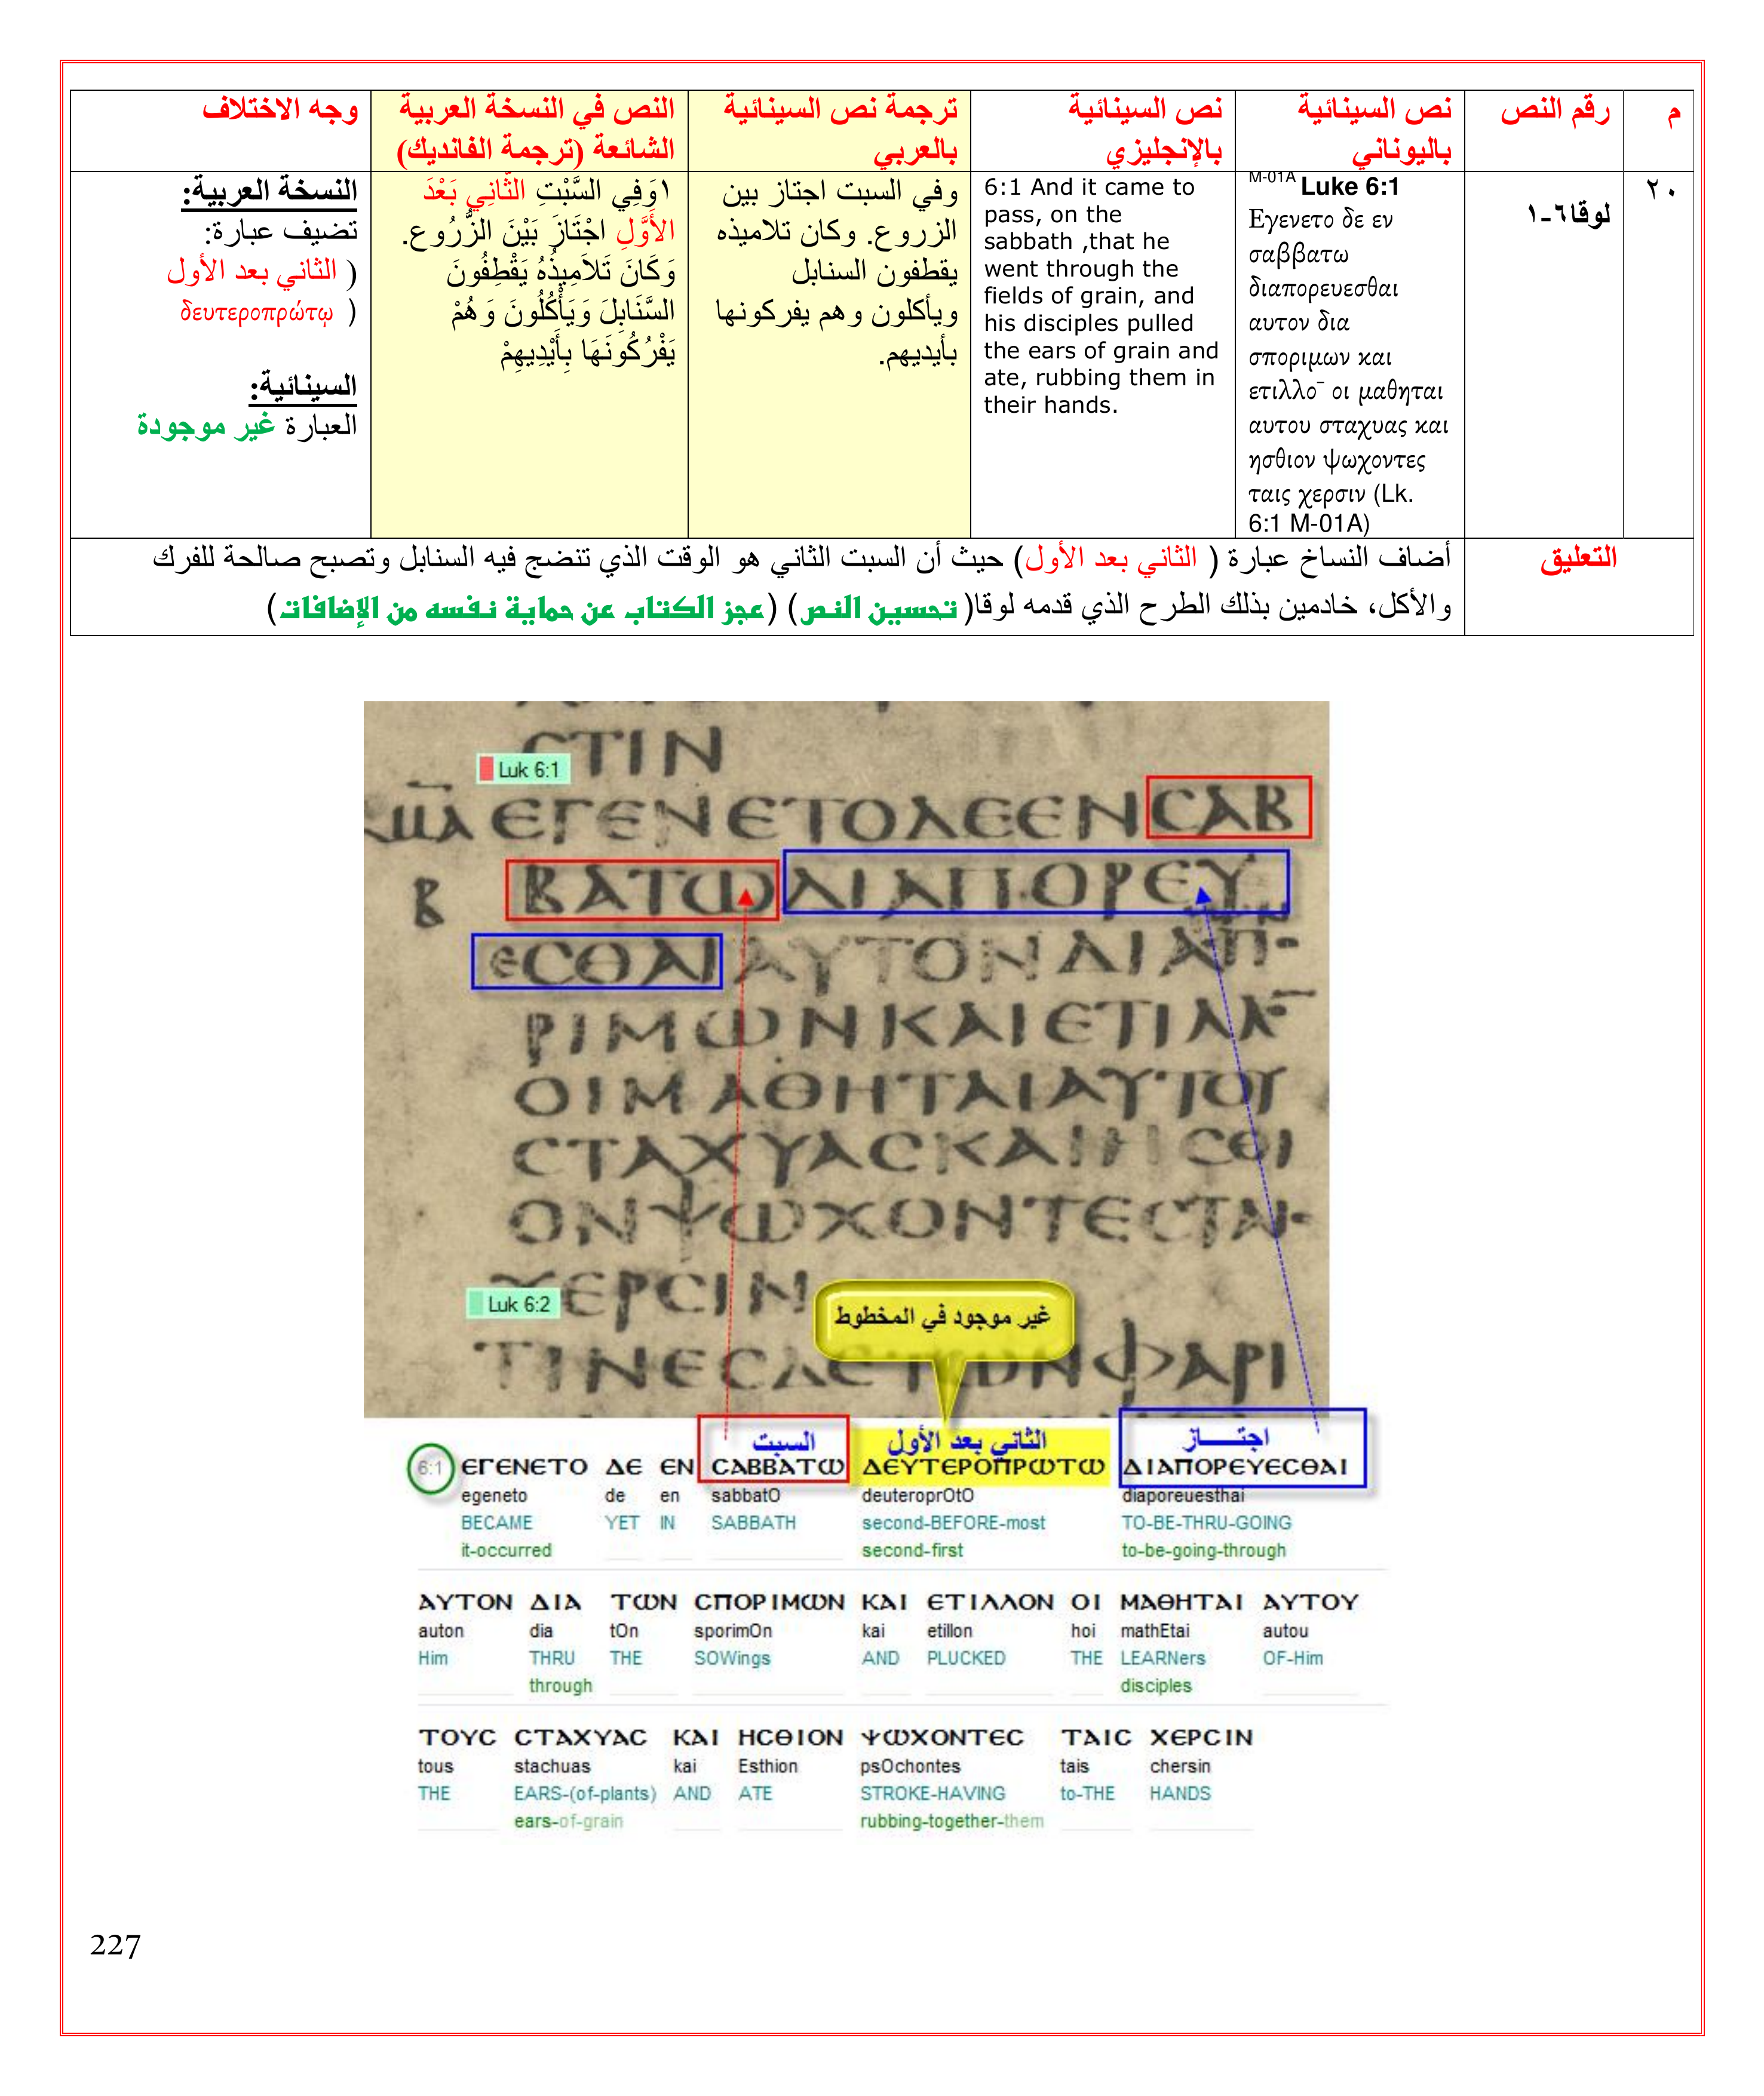 م
رقم النص
نص السينائية
باليوناني
نص السينائية
بالإنجليزي
ترجمة نص السينائية
بالعربي
النص في النسخة العربية
الشائعة (ترجمة الفانديك)
وجه الاختلاف
٢٠
لوقا٦-١
M-01A Luke 6:1
Εγενετο δε εν
σαββατω
διαπορευεσθαι
αυτον δια
σποριμων και
ετιλλο¯ οι μαθηται
αυτου σταχυας και
ησθιον ψωχοντες
ταις χερσιν (Lk.
6:1 M-01A)
6:1 And it came to
pass, on the
sabbath ,that he
went through the
fields of grain, and
his disciples pulled
the ears of grain and
ate, rubbing them in
their hands.
وفي السبت اجتاز بين
الزروع. وكان تلاميذه
يقطفون السنابل
ويأكلون وهم يفركونها
بأيديهم.
١وَفِي السَّبْتِ الثَّانِي بَعْدَ
الأَوَّلِ اجْتَازَ بَيْنَ الزُّرُوعِ.
وَكَانَ تَلاَمِيذُهُ يَقْطِفُونَ
السَّنَابِلَ وَيَأْكُلُونَ وَهُمْ
يَفْرُكُونَهَا بِأَيْدِيهِمْ
النسخة العربية:
تضيف عبارة:
( الثاني بعد الأول
δευτεροπρώτῳ )
السينائية:
العبارة غير موجودة
التعليق
أضاف النساخ عبارة ( الثاني بعد الأول) حيث أن السبت الثاني هو الوقت الذي تنضج فيه السنابل وتصبح صالحة للفرك
والأكل، خادمين بذلك الطرح الذي قدمه لوقا( تحسين النص) (عجز الكتاب عن حماية نفسه من الإضافات)
CTIN
Luk 6:1
ΕΓΕΝΕΤΟΔΕΕΝCΑΒ
Β ΒΑΤΩΔΙΑΠΟΡΕΥ
ΕCΘΑΙΑΥΤΟΝΔΙΑ
ΡΙΜΩΝΚΑΙΕΤΙΛΛ
ΟΙΜΑΘΗΤΑΙΑΥΤΟΥ
CΤΑΧΥΑCΚΑΙΗCΘΙ
ΟΝΨΩΧΟΝΤΕCΤΑΙ
ΧΕΡCΙΝ
Luk 6:2
غير موجود في المخطوط
ΤΙΝΕCΔΕΤΩΝΦΑΡΙ
السبت الثاني بعد الأول اجتــــاز
6:1 ΕΓΕΝΕΤΟ ΔΕ ΕΝ CΑΒΒΑΤΩ ΔΕΥΤΕΡΟΠΡΩΤΩ ΔΙΑΠΟΡΕΥΕCΘΑΙ
egeneto de en sabbatO deuteroprOtO diaporeuesthai
BECAME YET IN SABBATH second-BEFORE-most TO-BE-THRU-GOING
it-occurred second-first to-be-going-through
ΑΥΤΟΝ ΔΙΑ ΤΩΝ CΠΟΡΙΜΩΝ ΚΑΙ ΕΤΙΛΛΟΝ ΟΙ ΜΑΘΗΤΑΙ ΑΥΤΟΥ
auton dia tOn sporimOn kai etillon hoi mathEtai autou
Him THRU THE SOWings AND PLUCKED THE LEARNers OF-Him
through disciples
ΤΟΥC CΤΑΧΥΑC ΚΑΙ ΗCΘΙΟΝ ΨΩΧΟΝΤΕC ΤΑΙC ΧΕΡCΙΝ
tous stachuas kai Esthion psOchontes tais chersin
THE EARS-(of-plants) AND ATE STROKE-HAVING to-THE HANDS
ears-of-grain rubbing-together-them
227